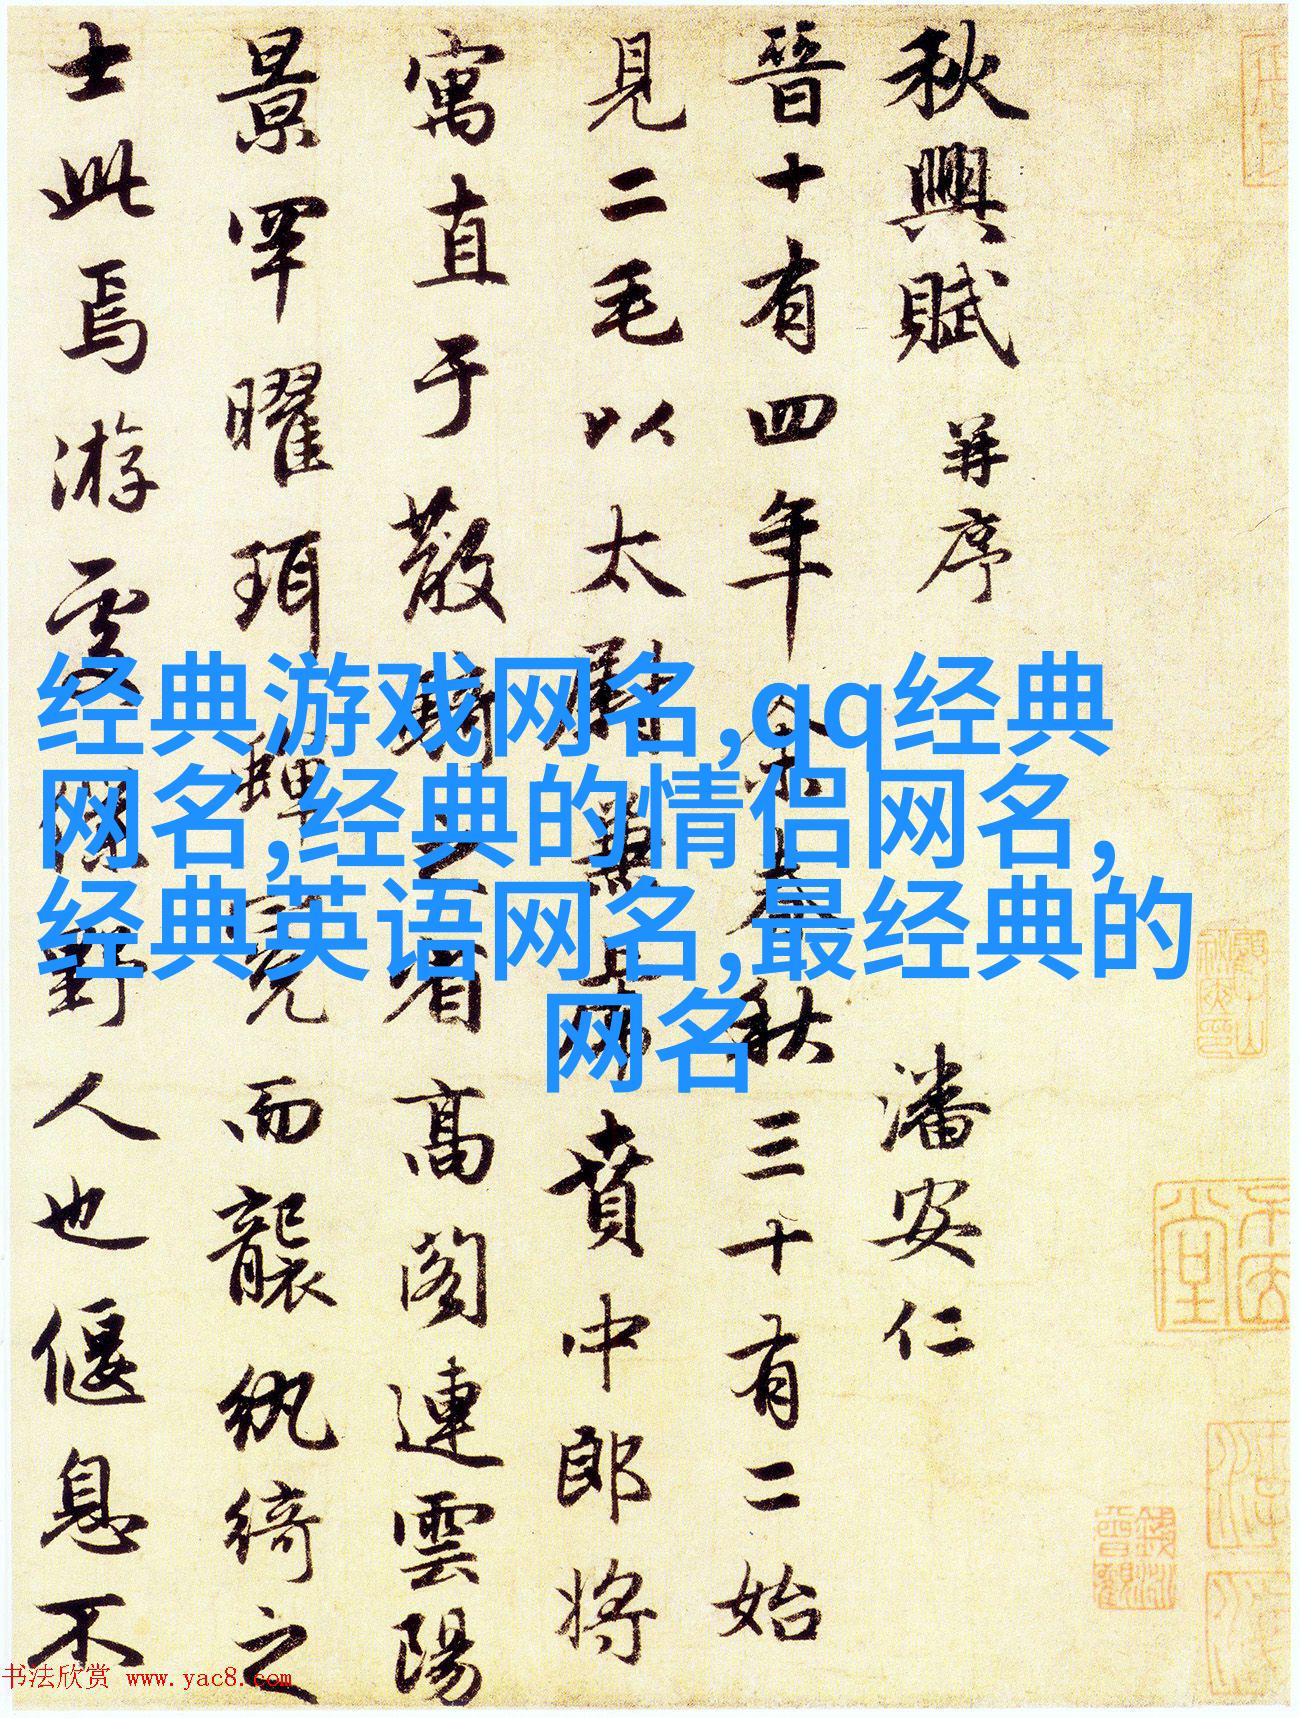 秋興賦 并序 潘安仁
晉十有四年余春秋三十有二始
見二毛以太尉虎賁中郎将
寓直于散騎之省高閣連雲陽
景罕曜珥蟬冕而襲紈綺之
士此焉游處僕野人也偃息不
经典游戏网名,qq经典
网名,经典的情侣网名,
经典英语网名,最经典的
网名
书法欣赏 www.yac8.com